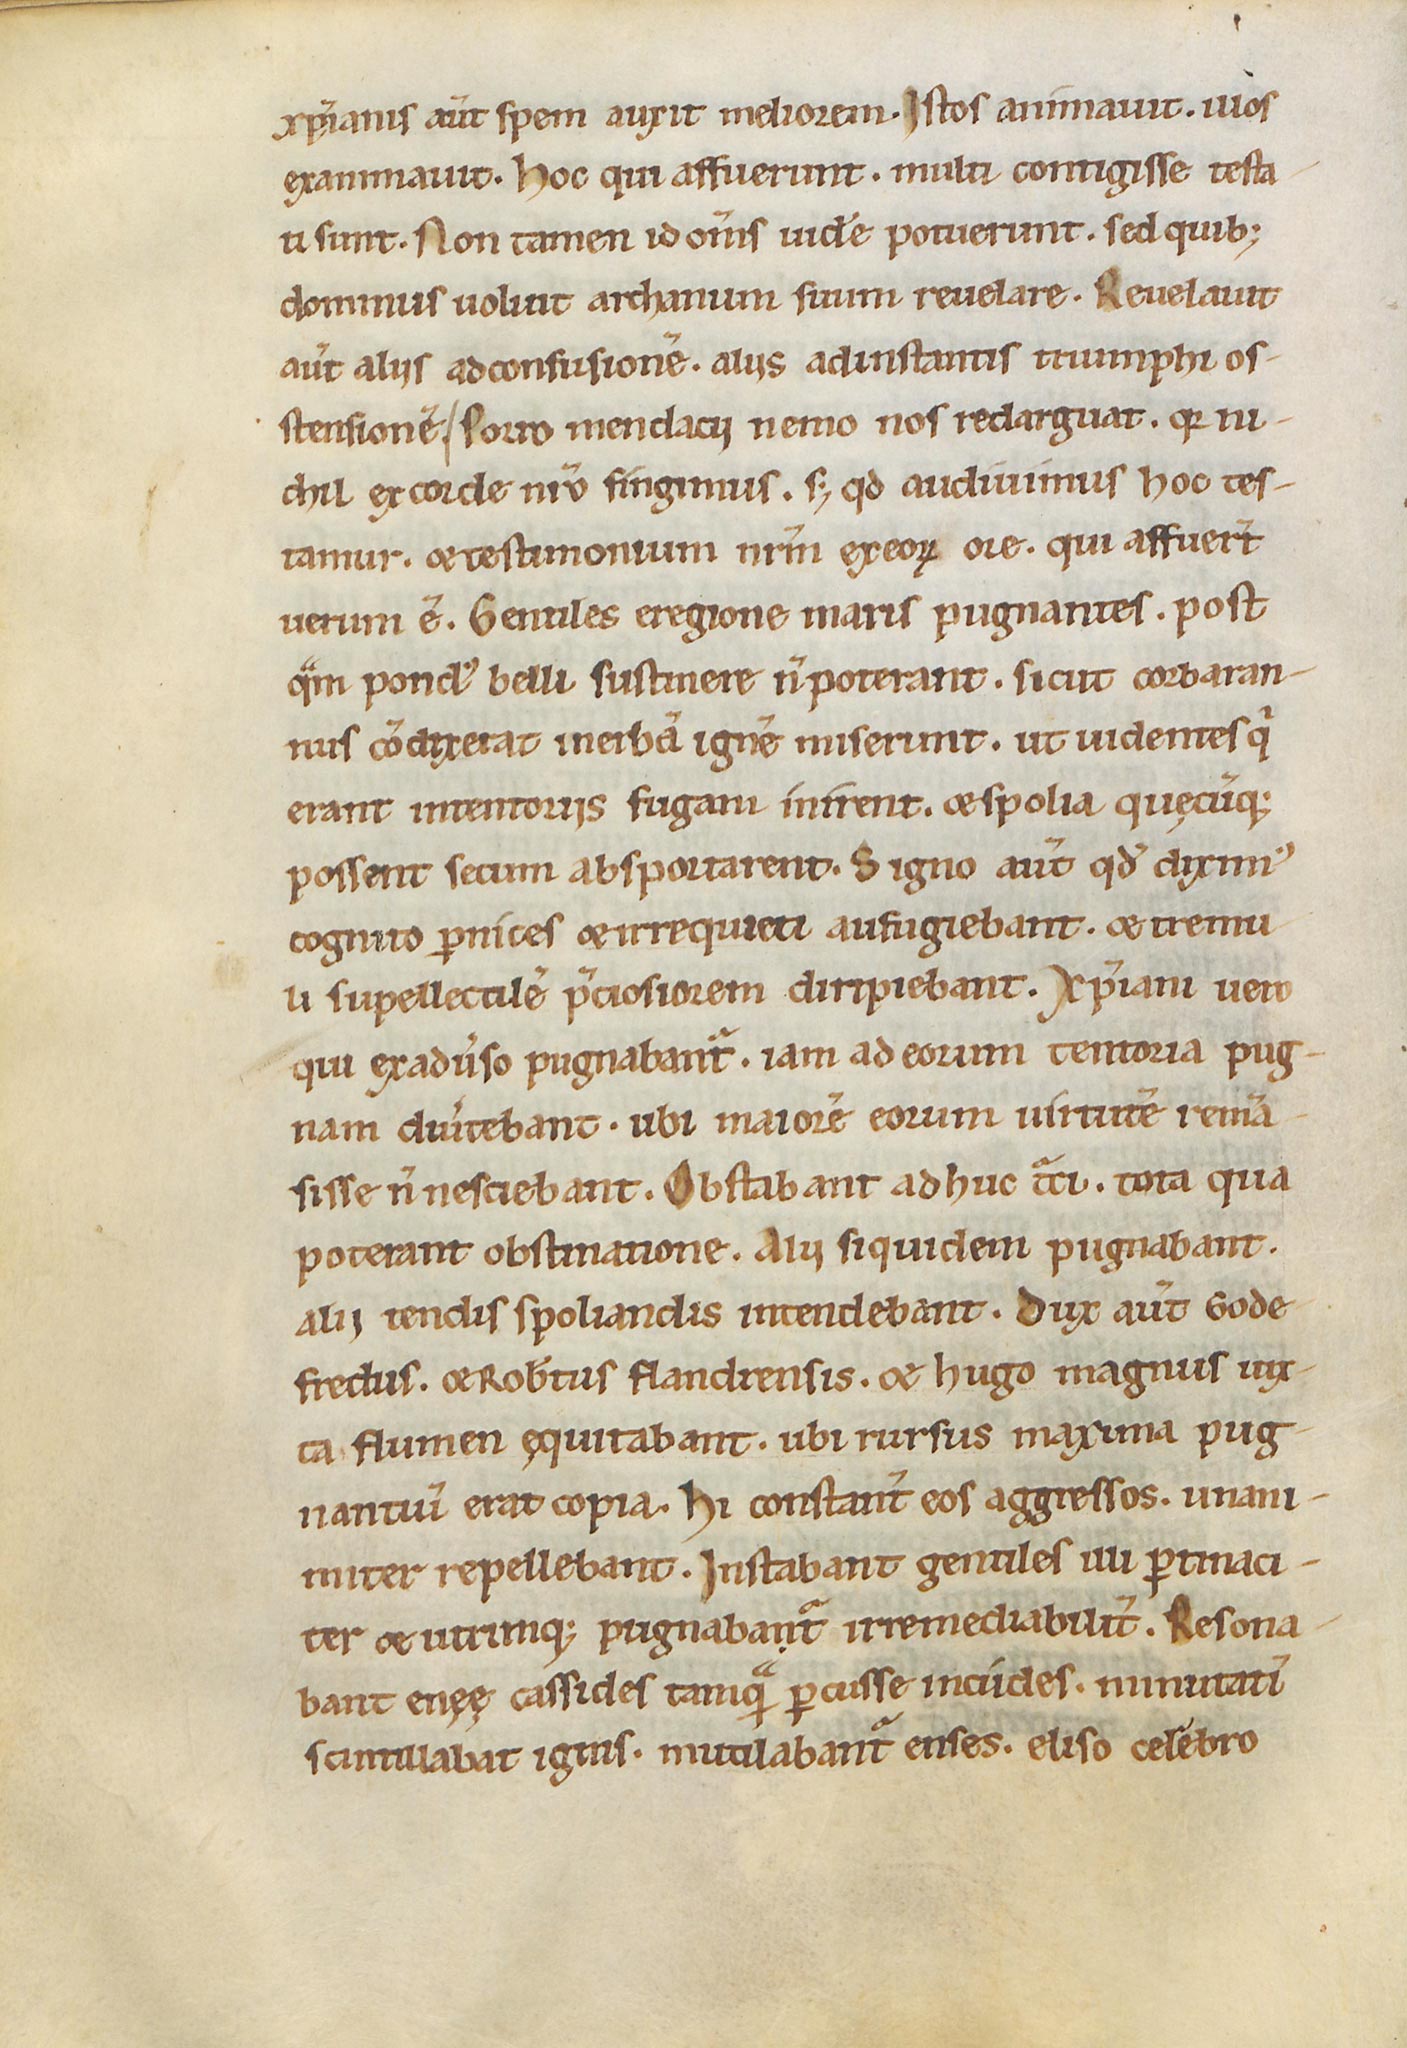 xp̄ianis aūt spem auxit meliorem. Istos animauit. illos
exanimauit. Hoc qui affuerunt. multi contigisse testa-
ti sunt. Non tamen id om̄s uid̄e potuerunt. sed quib;
dominus uoluit archanum suum reuelare. Reuelauit
aūt alijs ad confusionē. alijs ad instantis triumphi os-
tensionē. Porro mendacij nemo nos redarguat. qr ni-
chil ex corde nr̄o fingimus. s; qd audiuimus hoc tes-
tamur. & testimonium nr̄m ex eoꝝ ore. qui affuer̄t
uerum ē. Gentiles e regione maris pugnantes. post
qᵃm pondꝰ belli sustinere n̄ poterant. sicut corbaran-
nus cōdixerat in erbā ignē miserunt. ut uidentes qⁱ
erant in tentorijs fugam inirent. & spolia quęcūq;
possent secum absportarent. Signo aūt qd̄ diximꝰ
cognito ꝑnices & irrequieti aufugiebant. & tremu
li supellectilē p̄ciosiorem diripiebant. Xp̄iani uero
qui ex adūso pugnabantᷣ. iam ad eorum tentoria pug-
nam diūtebant. ubi maiorē eorum uirtutē remā-
sisse n̄ nesciebant. Obstabant adhuc t̄ci. tota qua
poterant obstinatione. Alij siquidem pugnabant.
alij tendis spoliandis intendebant. Dux aūt Gode
fredus. & Rob̄tus flandrensis. & hugo magnus iux-
ta flumen ęquitabant. ubi rursus maxima pug-
nantiū erat copia. Hi constant̄ eos aggressos. unani-
miter repellebant. Instabant gentiles illi ꝑtinaci-
ter & utrimq; pugnabantᷣ irremediabilit̄. Resona-
bant enęę cassides tamqᵃm ꝑcusse incudes. minutatī
scintillabat ignis. mutilabantᷣ enses. eliso celebro